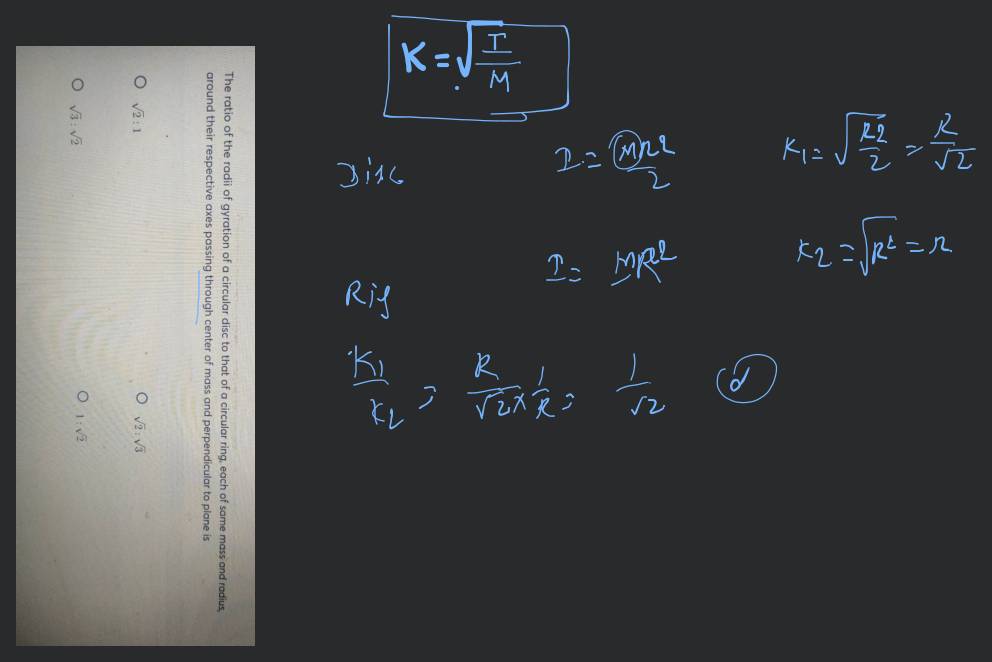 The ratio of the radii of gyration of a circular disc to that of a circular ring, each of same mass and radius,
around their respective axes passing through center of mass and perpendicular to plane is
√2 : 1
√2 : √3
√3 : √2
1 : √2
K = √(I/M)
Disc I = MR²/2 K₁ = √(R²/2) = R/√2
I = MR² K₂ = √R² = R
K₁/K₂ = R/√2 × 1/R = 1/√2 d